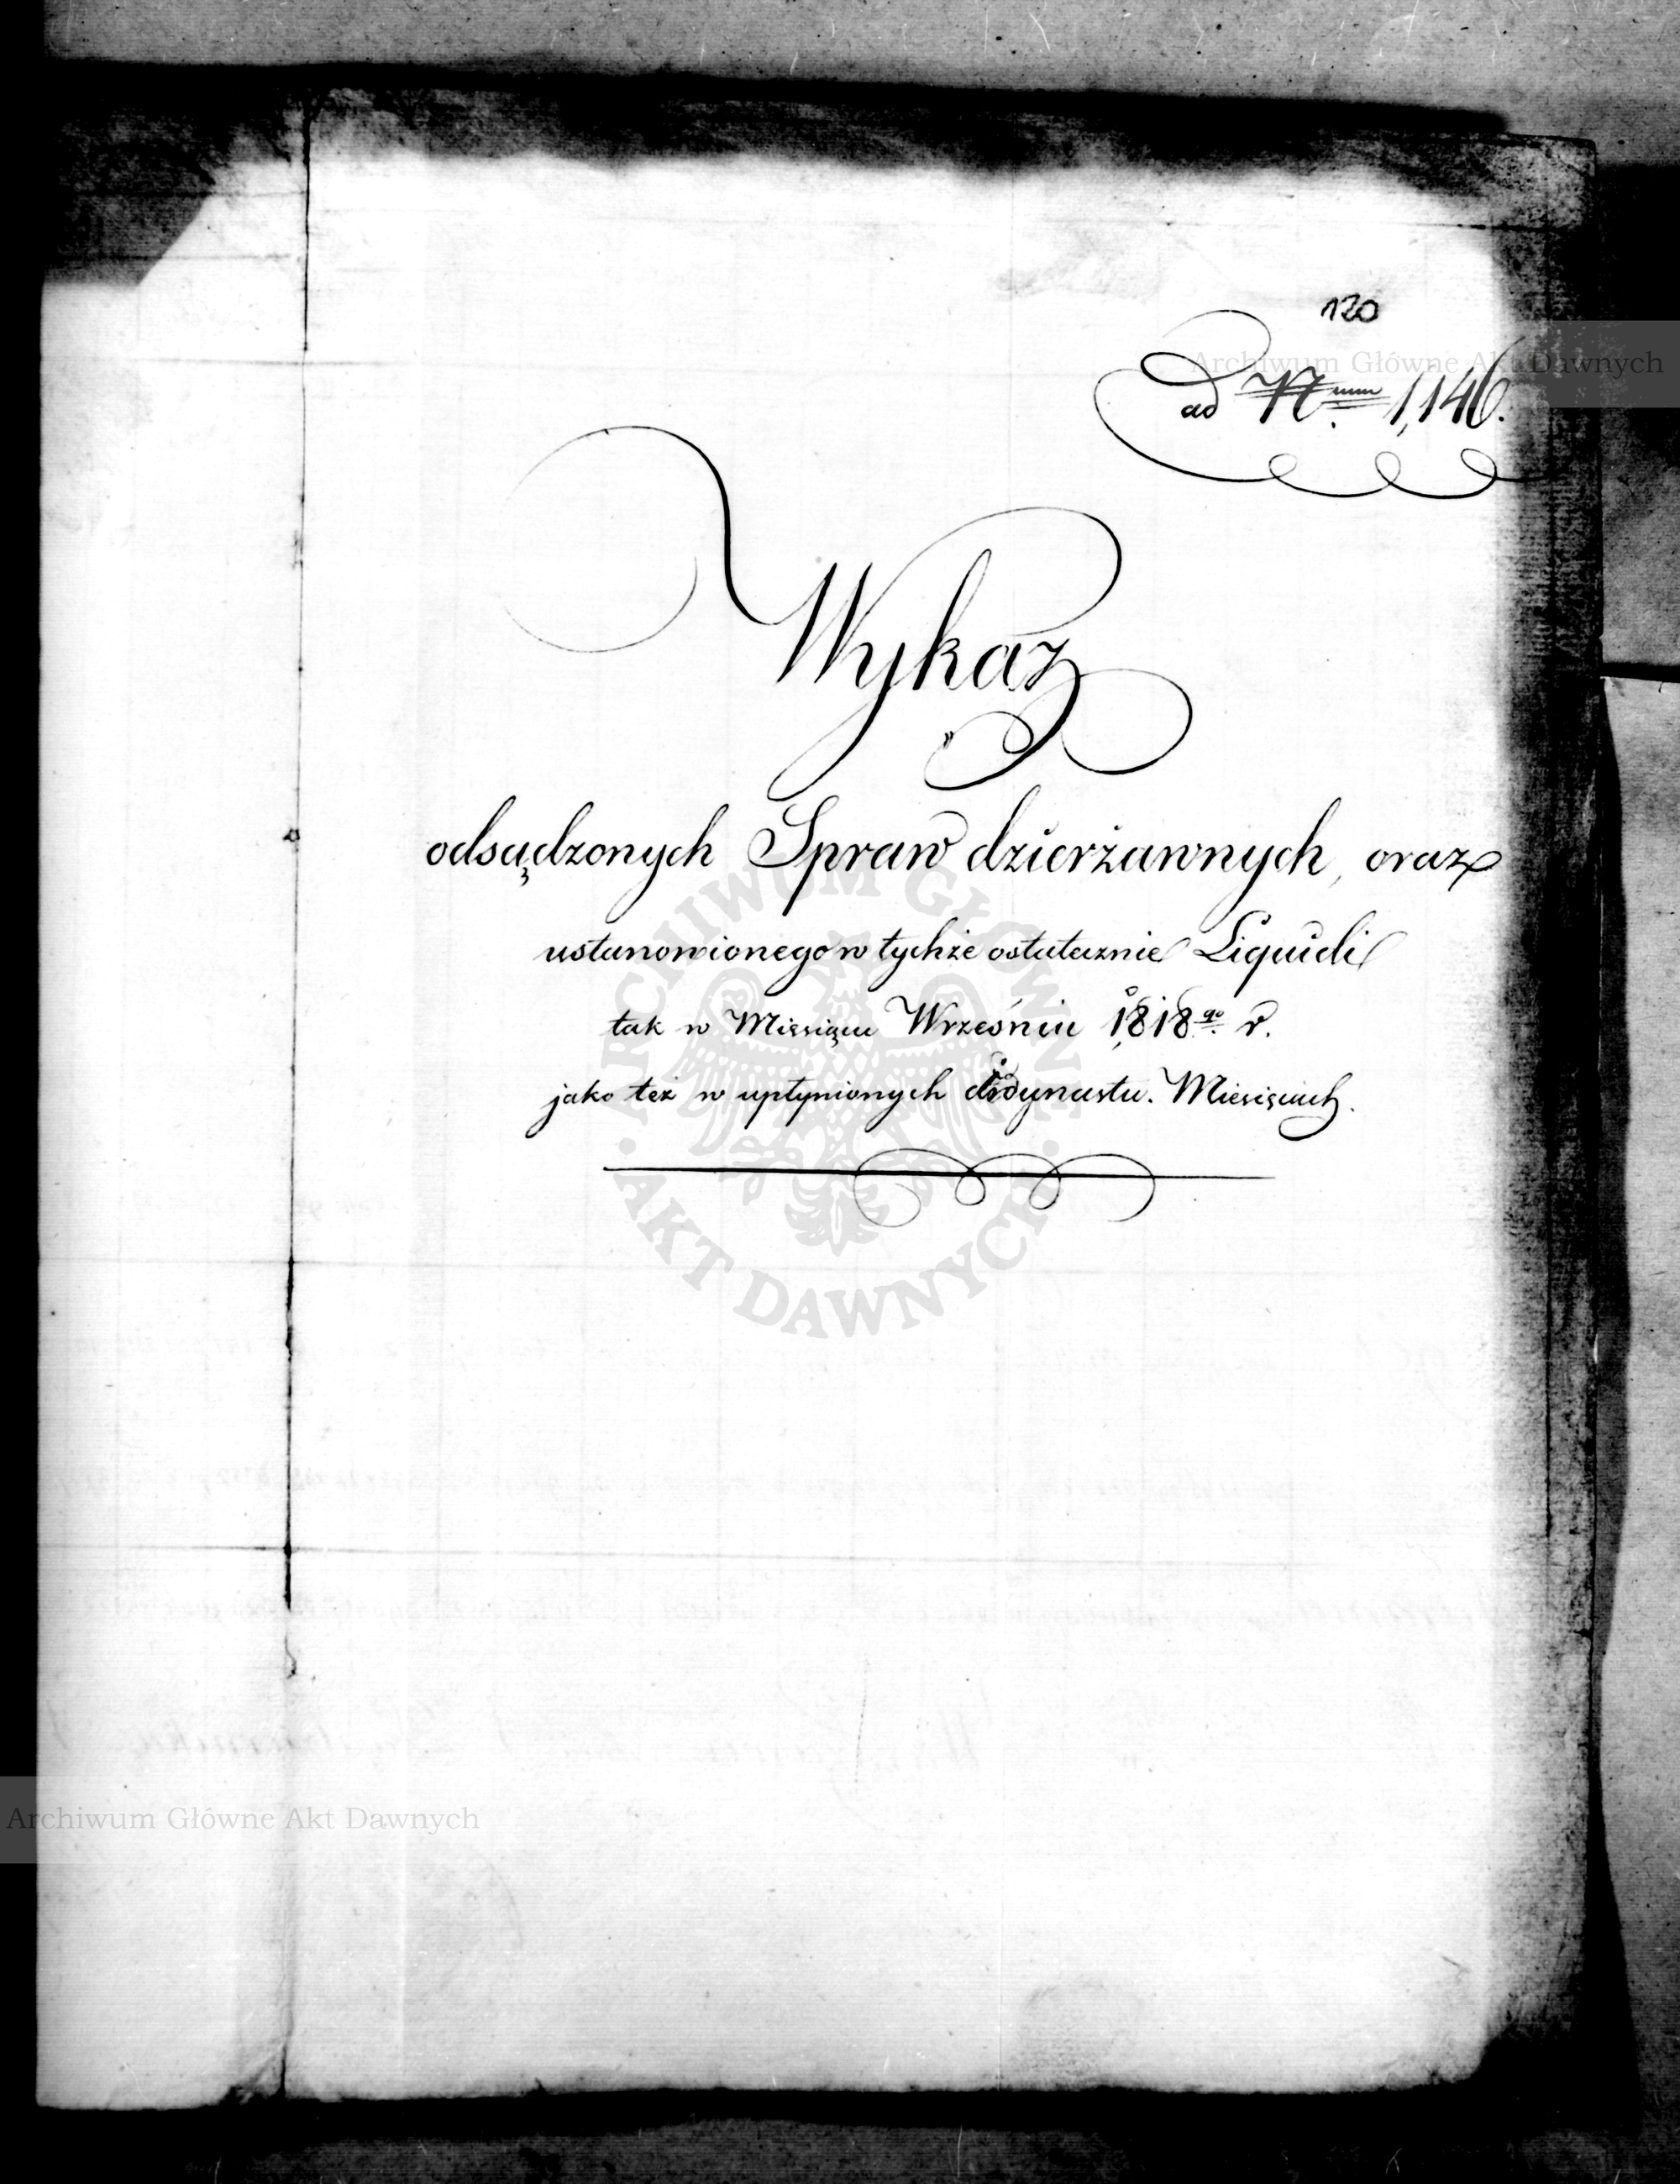 120
Archiwum Główne Akt Dawnych
ad Nrum 1,146.
Wykaz
odsądzonych Spraw dzierżawnych, oraz
ustanowionego w tychże ostatecznie Liquidi
tak w Miesiącu Wrześniu 1818go r.
jako też w upłynionych Miesiącach.
ARCHIWUM GŁÓWNE
· AKT DAWNYCH ·
Archiwum Główne Akt Dawnych